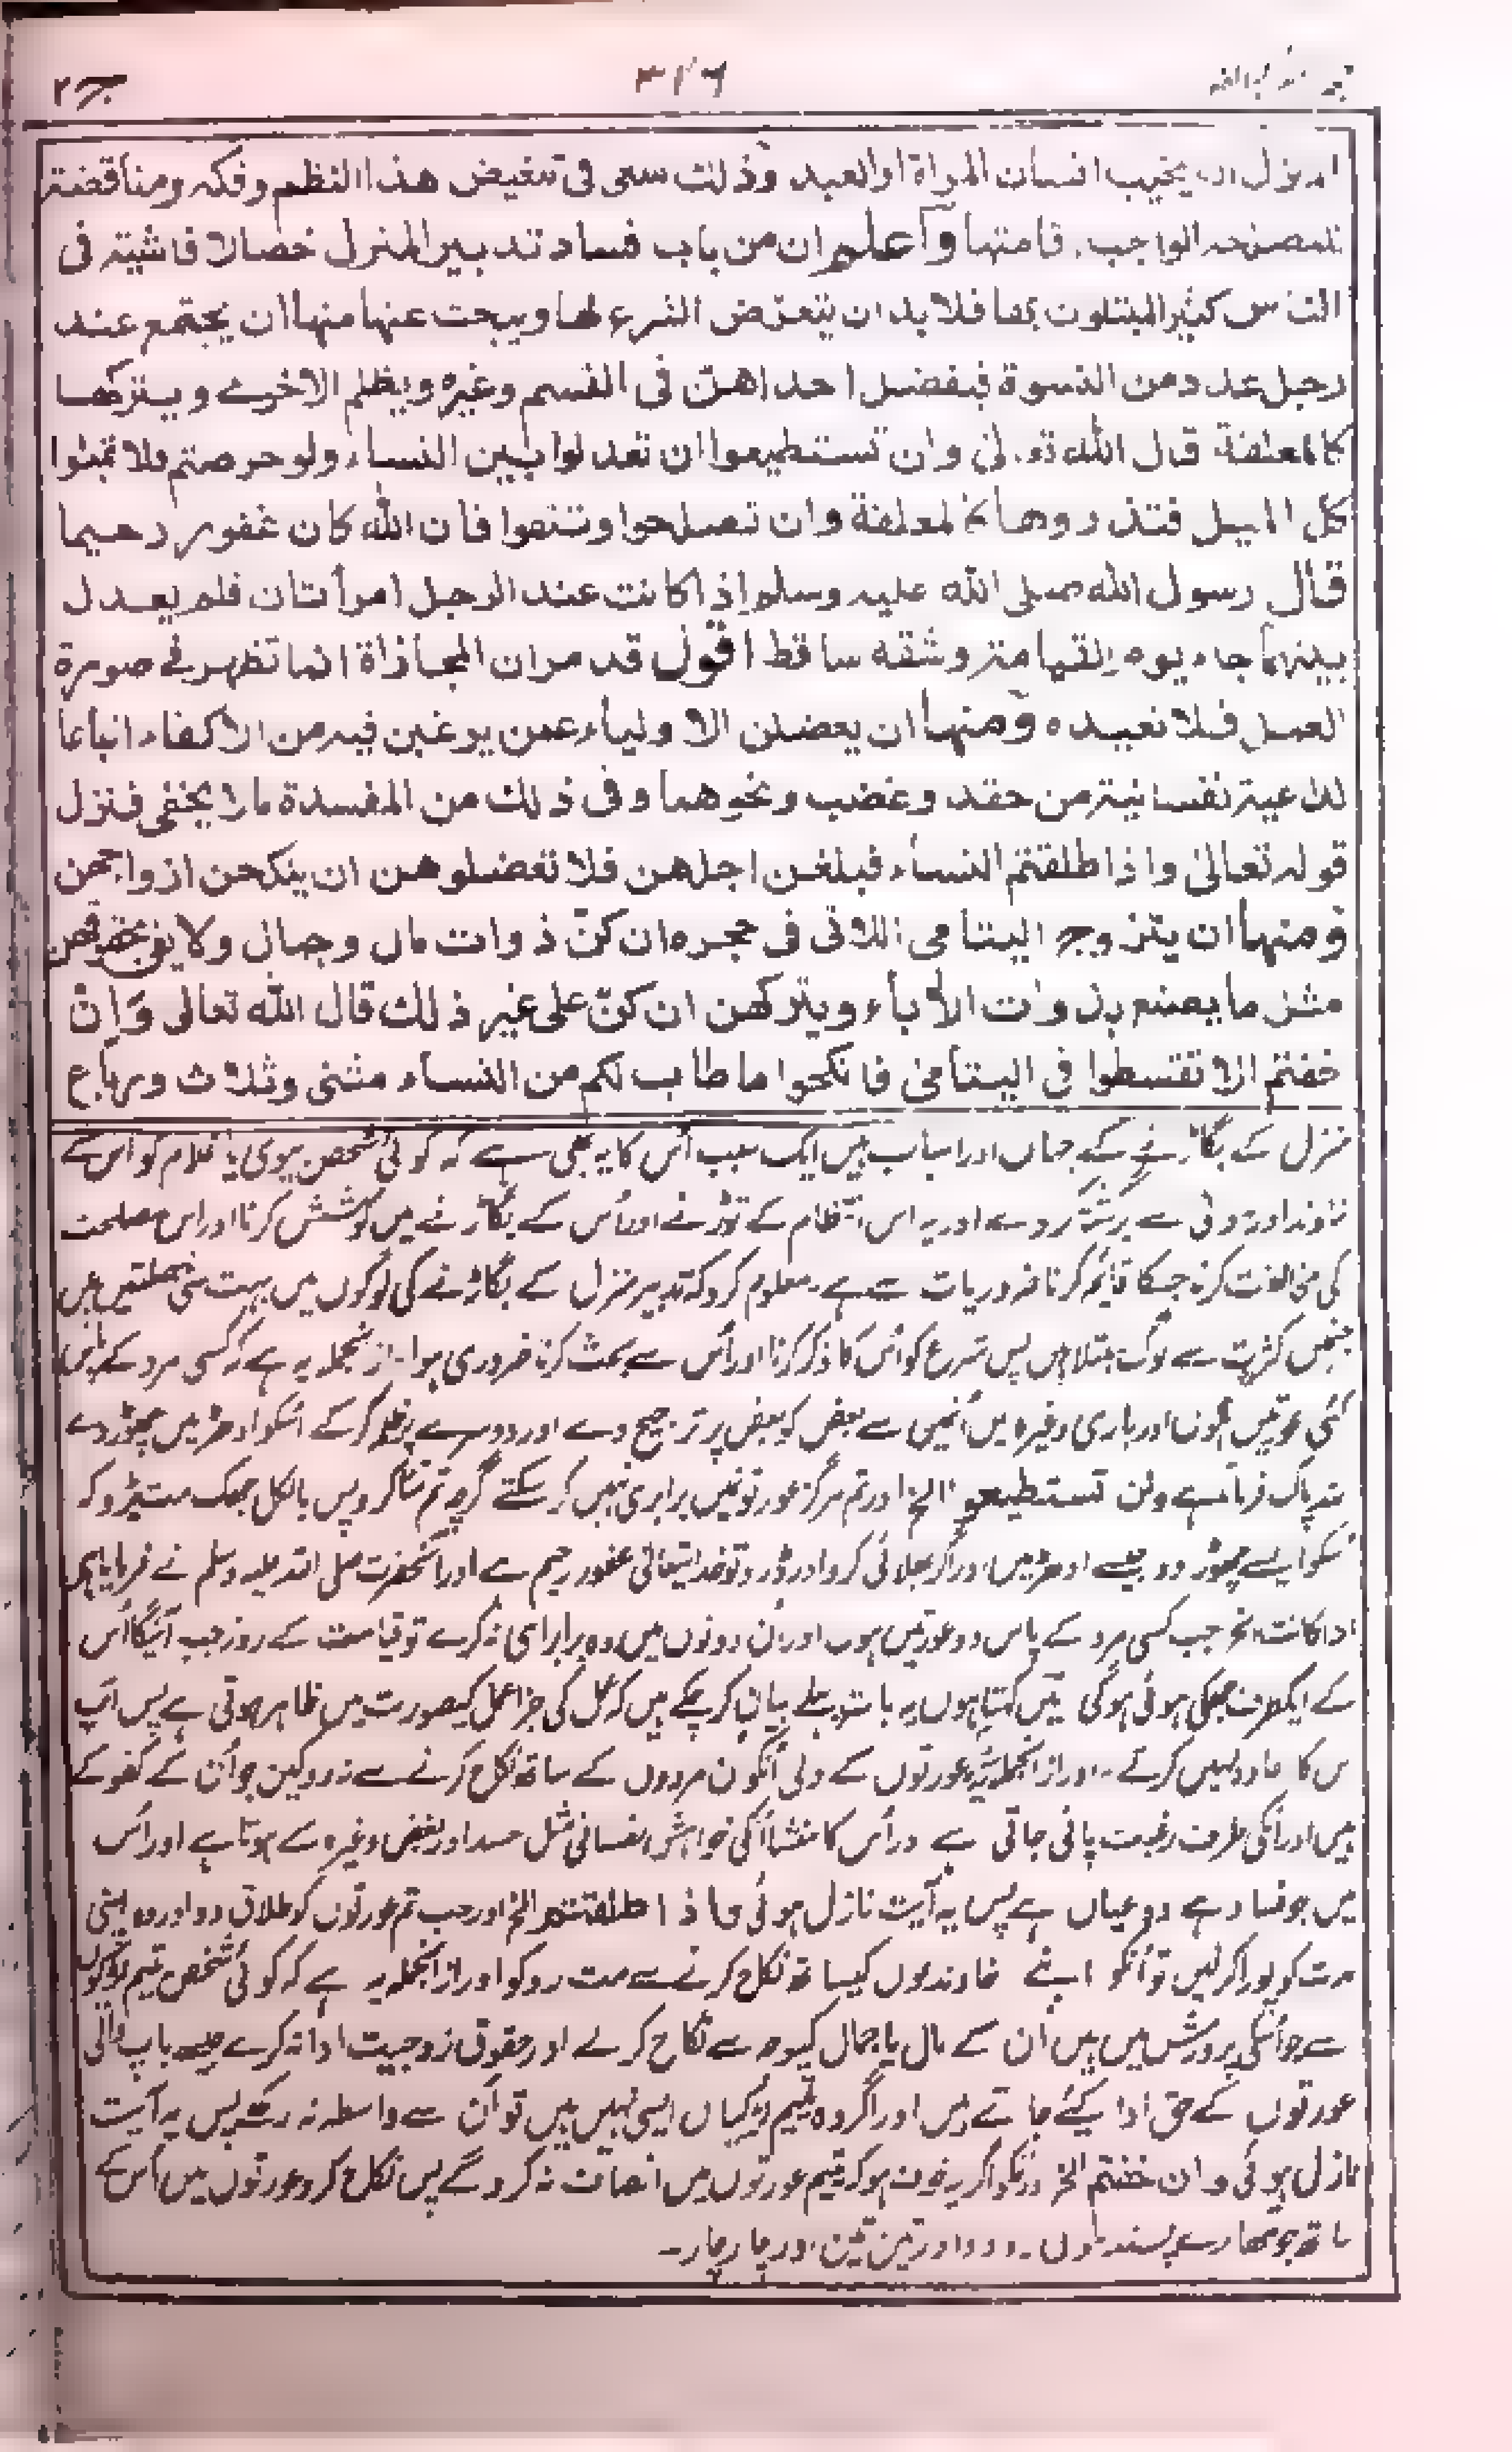 ۳۴۶
المنزل ان يخبب انسان المرأة او العبد وذلك سعى فى تنغيض هذا النظم وفكه ومناقضة
للمصلحة الواجب قامتها واعلم ان من باب فساد تدبير المنزل خصالا فاشية فى
الناس كثير المبتلون بها فلا بد ان يتعرض الشرع لها ويبحث عنها منها ان يجتمع عند
رجل عدد من النسوة فيفضل احداهن فى القسم وغيره ويظلم الاخرے ويتركها
كالمعلقة قال الله تعالى ولن تستطيعوا ان تعدلوا بين النساء ولو حرصتم فلا تميلوا
كل الميل فتذروها كالمعلقة وان تصلحوا وتتقوا فان الله كان غفورا رحيما
قال رسول الله صلى الله عليه وسلم اذا كانت عند الرجل امرأتان فلم يعدل
بينهما جاء يوم القيامة وشقه ساقط اقول قد مر ان المجازاة انما تظهر فى صورة
العمل فلا نعيده ومنها ان يعضلن الاولياء عمن يرغبن فيه من الاكفاء اتباعا
لداعية نفسانية من حقد وغضب ونحوهما وفى ذلك من المفسدة ما لا يخفى فنزل
قوله تعالىٰ واذا طلقتم النساء فبلغن اجلهن فلا تعضلوهن ان ينكحن ازواجهن
ومنها ان يتزوج اليتامى اللاتى فى حجره ان كنّ ذوات مال وجمال ولا يفى بحقوقهن
مثل ما يصنع بذوات الأباء ويتركهن ان كنّ على غير ذلك قال الله تعالى وَاِنْ
خفتم الا تقسطوا فى اليتامىٰ فانكحوا ما طاب لكم من النساء مثنى وثلاث ورباع
منزل کے بگاڑنے کے جہاں اور اسباب ہیں ایک سبب اُس کا یہ بھی ہے کہ کوئی شخص بیوی یا غلام کو اُس کے
خاوند اور مولی سے برگشتہ کر دے اور یہ اس انتظام کے توڑنے اور اُس کے بگاڑنے میں کوشش کرنا اور اس مصلحت
کی مخالفت کرنا جسکا قایم کرنا ضروریات سے ہے۔ معلوم کرو کہ تدبیر منزل کے بگاڑنے کی لوگوں میں بہت سی خصلتیں ہیں
جنمیں کثرت سے لوگ مبتلا ہیں پس شرع کو اُس کا ذکر کرنا اور اُس سے بحث کرنا ضروری ہوا۔ از نجملہ یہ ہے کہ کسی مرد کے پاس
کئی عورتیں ہوں اور باری وغیرہ میں اُنمیں سے بعض کو بعض پر ترجیح دے اور دوسرے پر ظلم کر کے اسکو ادھر میں چھوڑ دے
اللہ پاک فرماتا ہے ولن تستطیعوا الخ اور تم ہرگز عورتونمیں برابری نہیں کر سکتے گرچہ تم تمنا کرو پس بالکل جھک مت پڑو کہ
اُسکو ایسے چھوڑ دو جیسے ادھڑ میں اور اگر بھلائی کرو اور ڈرو تو خدا تیعالی غفور رحیم ہے اور آنحضرت صلی اللہ علیہ وسلم نے فرمایا ہے
اذا کانت الخ جب کسی مرد کے پاس دو عورتیں ہوں اور اُن دونوں میں وہ برابری نہ کرے تو قیامت کے روز جب آئیگا اُس
کے ایکطرف جھکی ہوئی ہوگی میں کہتا ہوں یہ بات پہلے بیان کر چکے ہیں کہ عمل کی جزا عمل کیصورت میں ظاہر ہوتی ہے پس اب
اس کا عادہ نہیں کرتے۔ اور از انجملہ یہ ہے عورتوں کے ولی اُنکو ان مردوں کے ساتھ نکاح کرنے سے نہ روکین جو اُن کے کفو کے
ہیں اور اُنکی طرف رغبت پائی جاتی ہے اور اُس کا منشا اُنکی خواہش نفسانی مثل حسد اور بغض وغیرہ کے ہوتا ہے اور اُس
میں جو فساد ہے وہ عیاں ہے پس یہ آیت نازل ہوئی واذا طلقتم الخ اور جب تم عورتوں کو طلاق دو اور وہ اپنی
مدت کو پورا کر لیں تو اُنکو اپنے خاوندوں کیساتھ نکاح کرنے سے مت روکو اور از انجملہ یہ ہے کہ کوئی شخص یتیم لڑکیوں
سے جو اُسکی پرورش میں ہیں اُن کے مال یا جمال کیوجہ سے نکاح کرلے اور حقوق زوجیت ادا نہ کرے جیسے باپ والی
عورتوں کے حق ادا کیئے جاتے ہیں اور اگر وہ یتیم لڑکیاں ایسی نہیں ہیں تو اُن سے واسطہ نہ رکھے پس یہ آیت
نازل ہوئی وان خفتم الخ اور تمکو اگر یہ خوف ہو کہ یتیم عورتوں میں انصاف نہ کرو گے پس نکاح کرو عورتوں میں اُس کے
ساتھ جو تمھارے پسند ہوں۔ دو دو اور تین تین اور چار چار۔